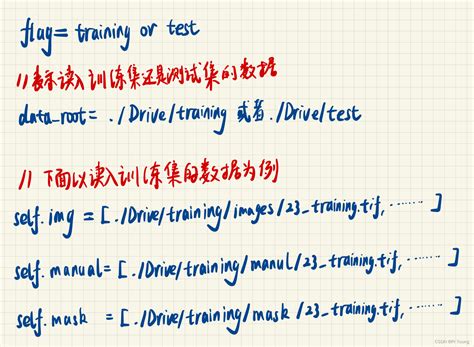 flag= training or test
//表示读入训练集还是测试集的数据
data_root= ./Drive/training 或者 ./Drive/test
// 下面以读入训练集的数据为例
self.img = [./Drive/training/images/23_training.tif, ...... ]
self.manual= [./Drive/training/manul/23_training.tif, ...... ]
self.mask = [./Drive/training/mask/23_training.tif, ...... ]